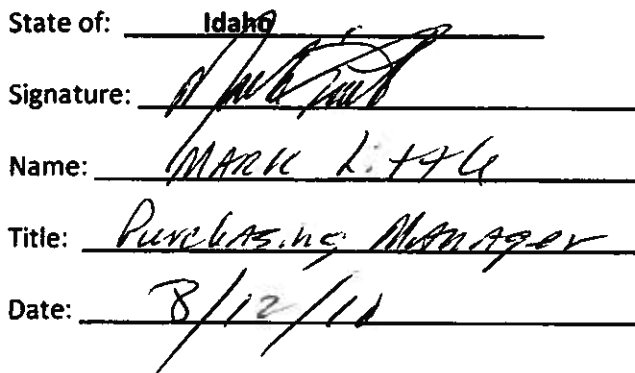 State of: Idaho
Signature:
Name: MARK Little
Title: Purchasing Manager
Date: 8/12/11